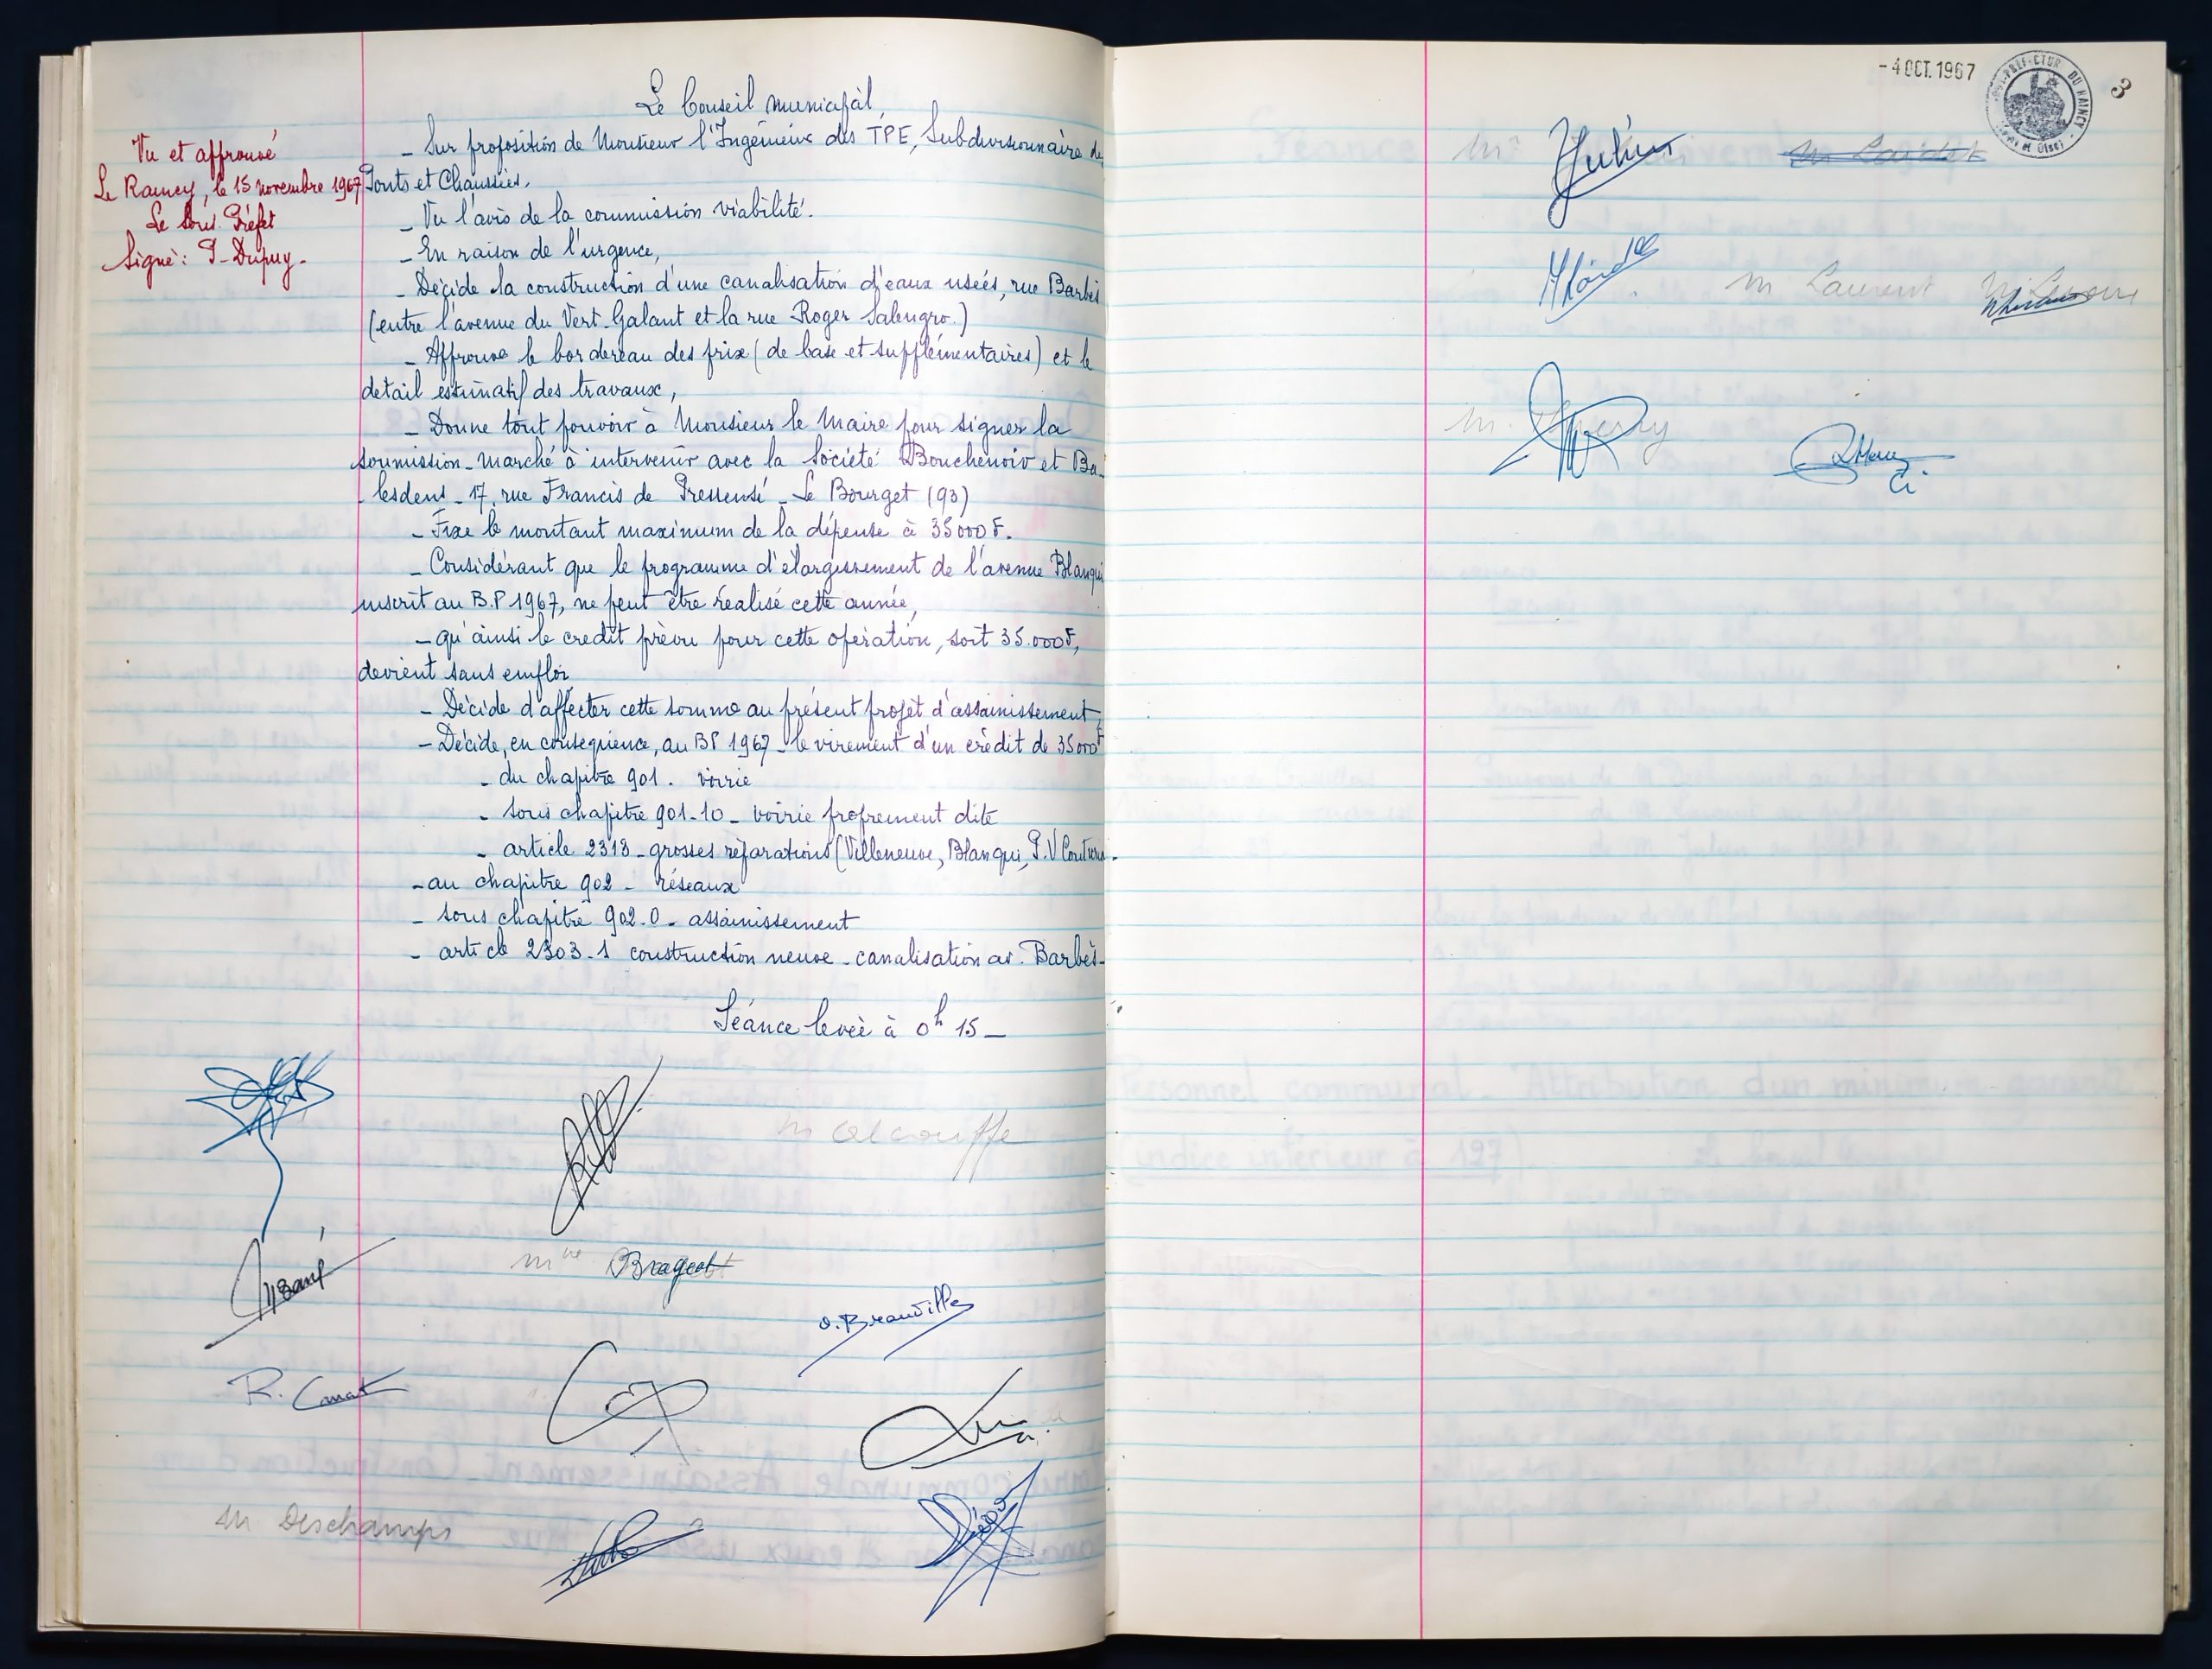 Vu et approuvé
Le Raincy, le 15 novembre 1967
Le Sous-Préfet
Signé: P-Dupuy-
Le Conseil municipal
- Sur proposition de Monsieur l'Ingénieur des TPE, Subdivisionnaire des
Ponts et Chaussées,
- Vu l'avis de la commission viabilité.
- En raison de l'urgence,
- Décide la construction d'une canalisation d'eaux usées, rue Barbès
(entre l'avenue du Vert-Galant et la rue Roger Salengro.)
- Approuve le bordereau des prix (de base et supplémentaires) et le
detail estimatif des travaux,
- Donne tout pouvoir à Monsieur le Maire pour signer la
soumission-marché à intervenir avec la Société Bouchenoir et Ba-
lesdens - 17, rue Francis de Pressensé - Le Bourget (93)
- Fixe le montant maximum de la dépense à 35000 F.
- Considérant que le programme d'élargissement de l'avenue Blanqui
inscrit au B.P 1967, ne peut être réalisé cette année,
- qu'ainsi le credit prévu pour cette opération, soit 35.000F,
devient sans emploi
- Décide d'affecter cette somme au présent projet d'assainissement,
- Décide, en conséquence, au BP 1967 - le virement d'un crédit de 35000F
- du chapitre 901. voirie
- sous chapitre 901-10 - voirie proprement dite
- article 2318 - grosses réparations (Villeneuve, Blanqui, P.V Couturier
- au chapitre 902 - réseaux
- sous chapitre 902.0 - assainissement
- article 2303-1 construction neuve - canalisation av. Barbès-
Séance levée à 0h 15 -
Mme Brageot
O. Brauville
M Deschamps
- 4 OCT. 1967
SOUS-PRÉFECTURE DU RAINCY
3
M Laurent